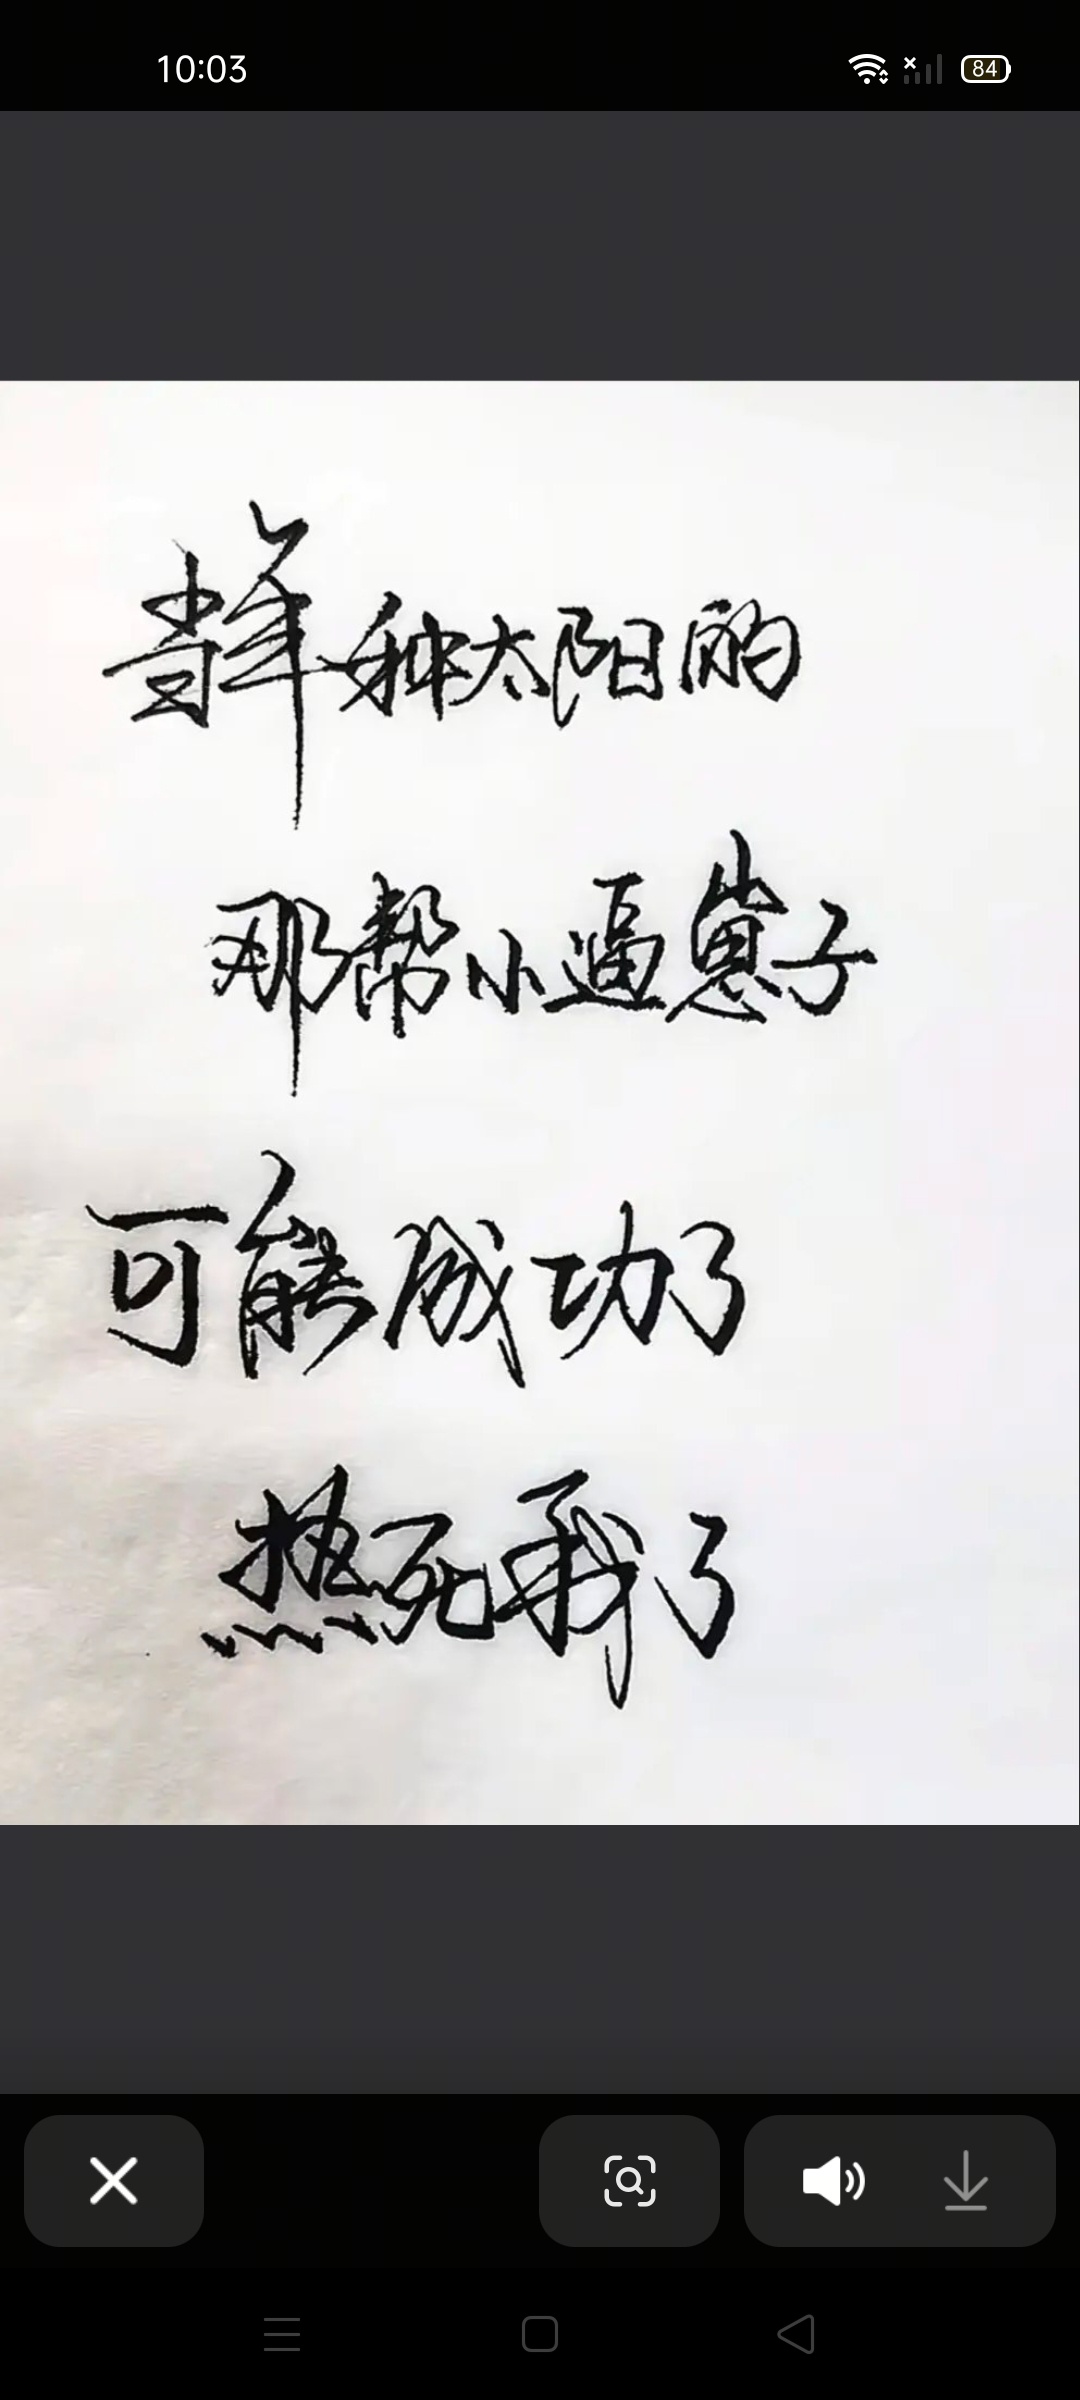 10:03
84
当年种太阳的
那帮小逼崽子
可能成功了
热死我了